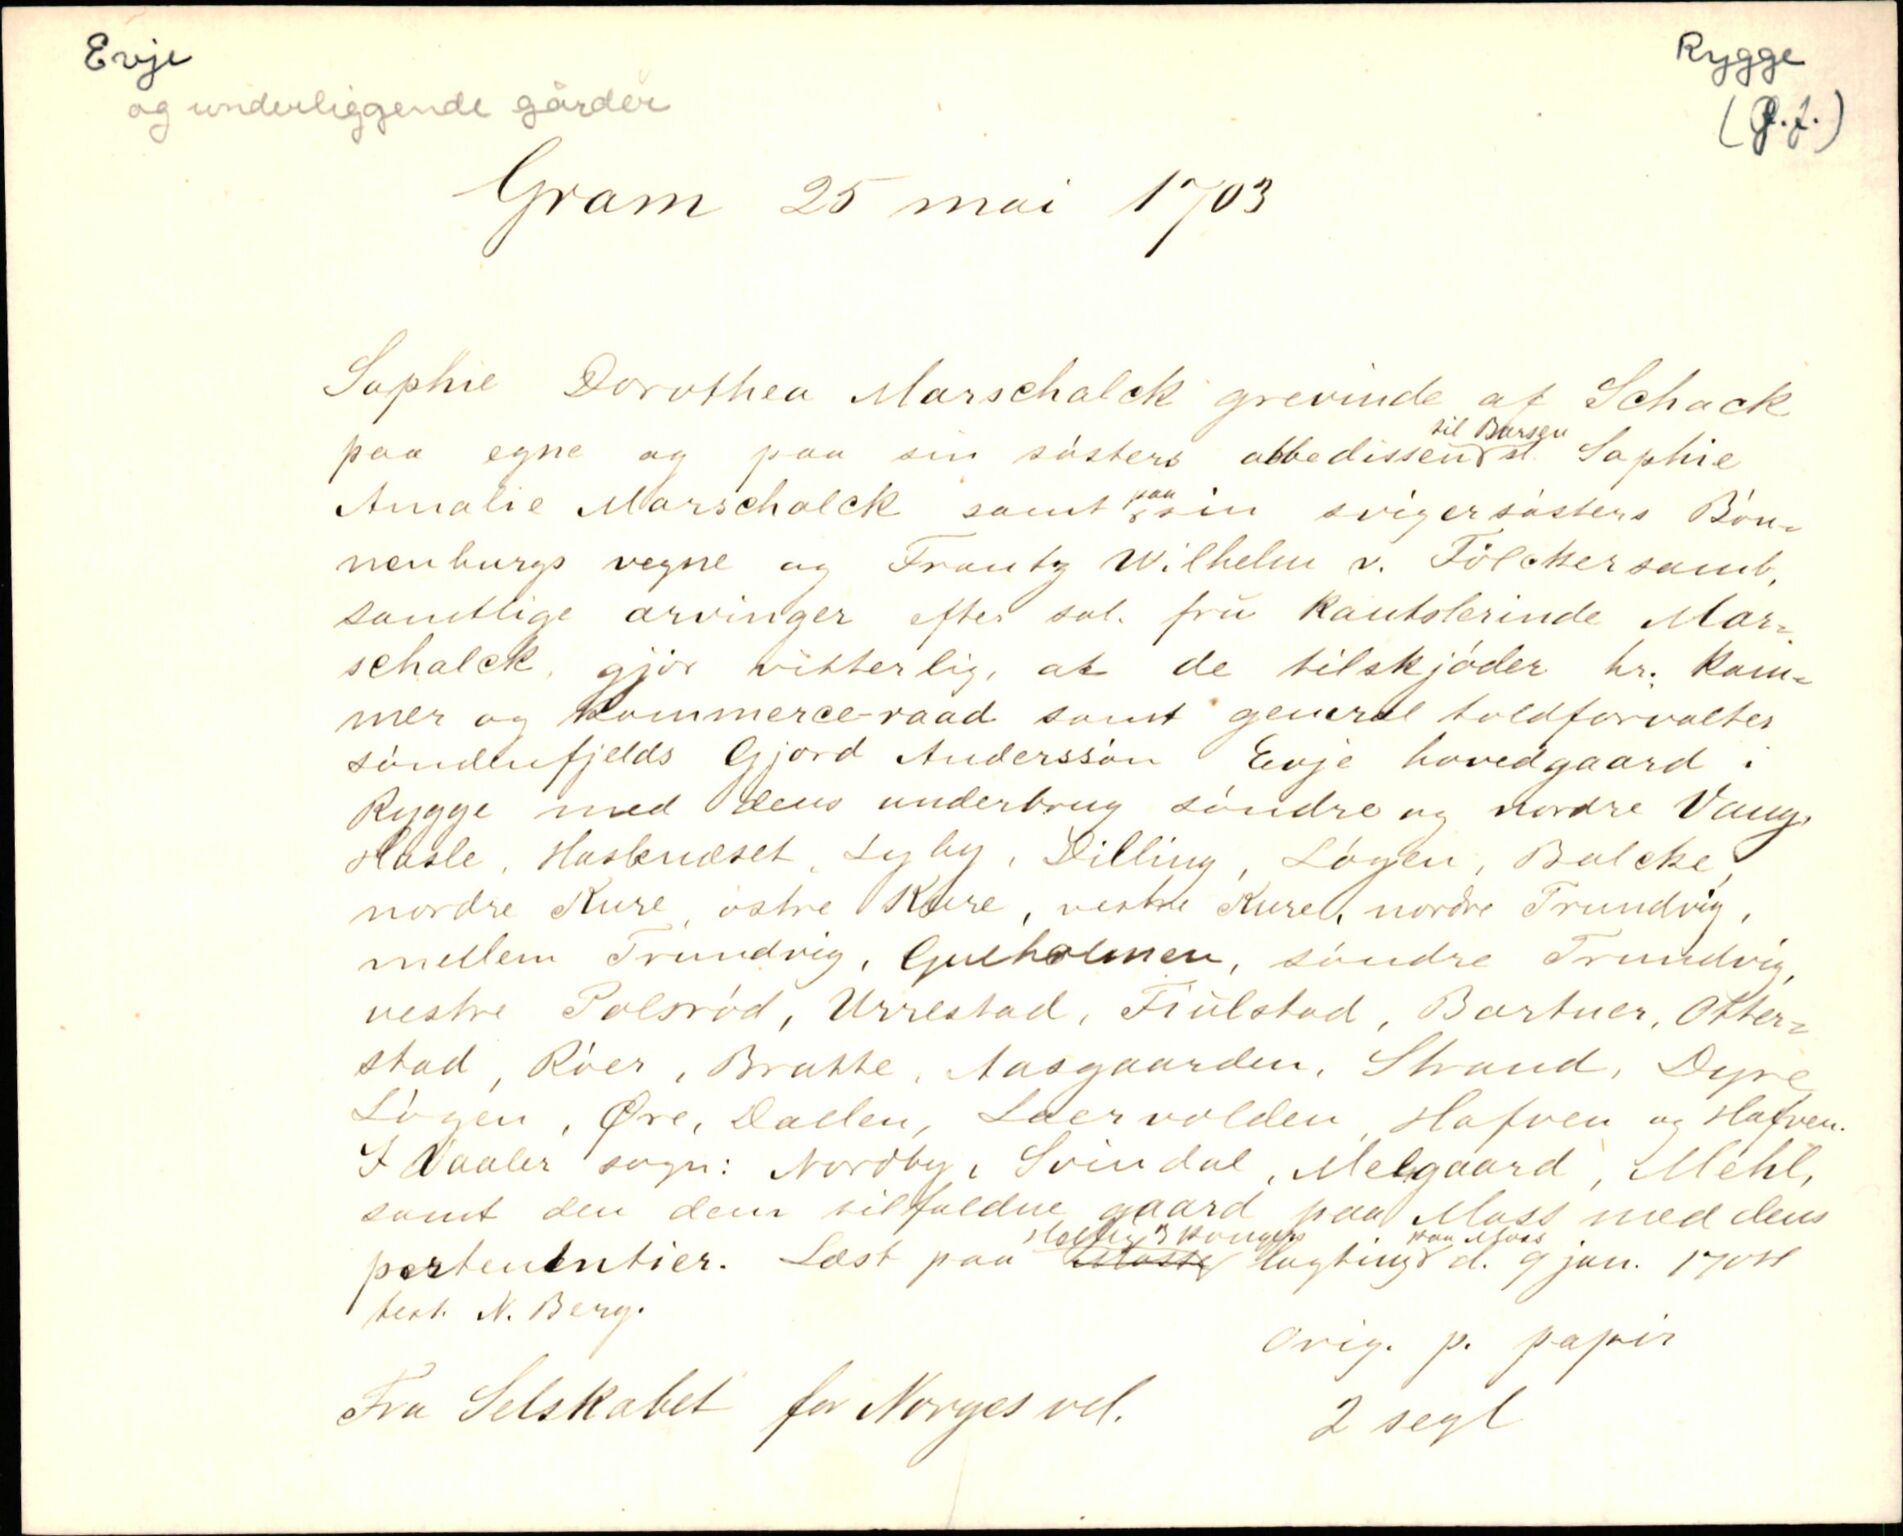 Evje
og underliggende gårder
Rygge
(P.f.)
Gram 25 mai 1703
Sophie Dorothea Marschalck grevinde af Schack
paa egne og paa sin søsters abbedissen til Barsen sl. Sophie
Amalie Marschalck samt paa sin svigersøsters Bön-
nenburgs vegne og Frantz Wilhelm v. Fölckersamb,
samtlige arvinger efter sal. frü kantslerinde Mar-
schalck, gjör vitterlig, at de tilskjöder hr. kam-
mer og kommerce-raad samt general toldforvalter
söndenfjelds Gjord Anderssön Evje hovedgaard i
Rygge med dens underbrug söndre og nordre Vang,
Hasle, Hasleneset, Lyby, Dilling, Lögen, Balcke,
nordre Kure, østre Kure, vestre Kure, nordre Trundvig,
mellem Trundvig, Gulholmen, söndre Trundvig,
vestre Palsröd, Urrestad, Fiulstad, Bartner, Otter-
stad, Röer, Bratte, Aasgaarden, Strand, Dyre
Lögen, Øre, Dallen, Laervolden, Hafven og Hafven.
I Vaaler sogn: Nordby, Svindal, Melgaard, Mehl,
samt den dem tilfaldne gaard paa Moss med dens
pertenentier. Læst paa Moste lagting paa Moss d. 9 jan. 1704
test. N. Berg.
Orig. p. papir
Fra Selskabet for Norges vel.
2 segl